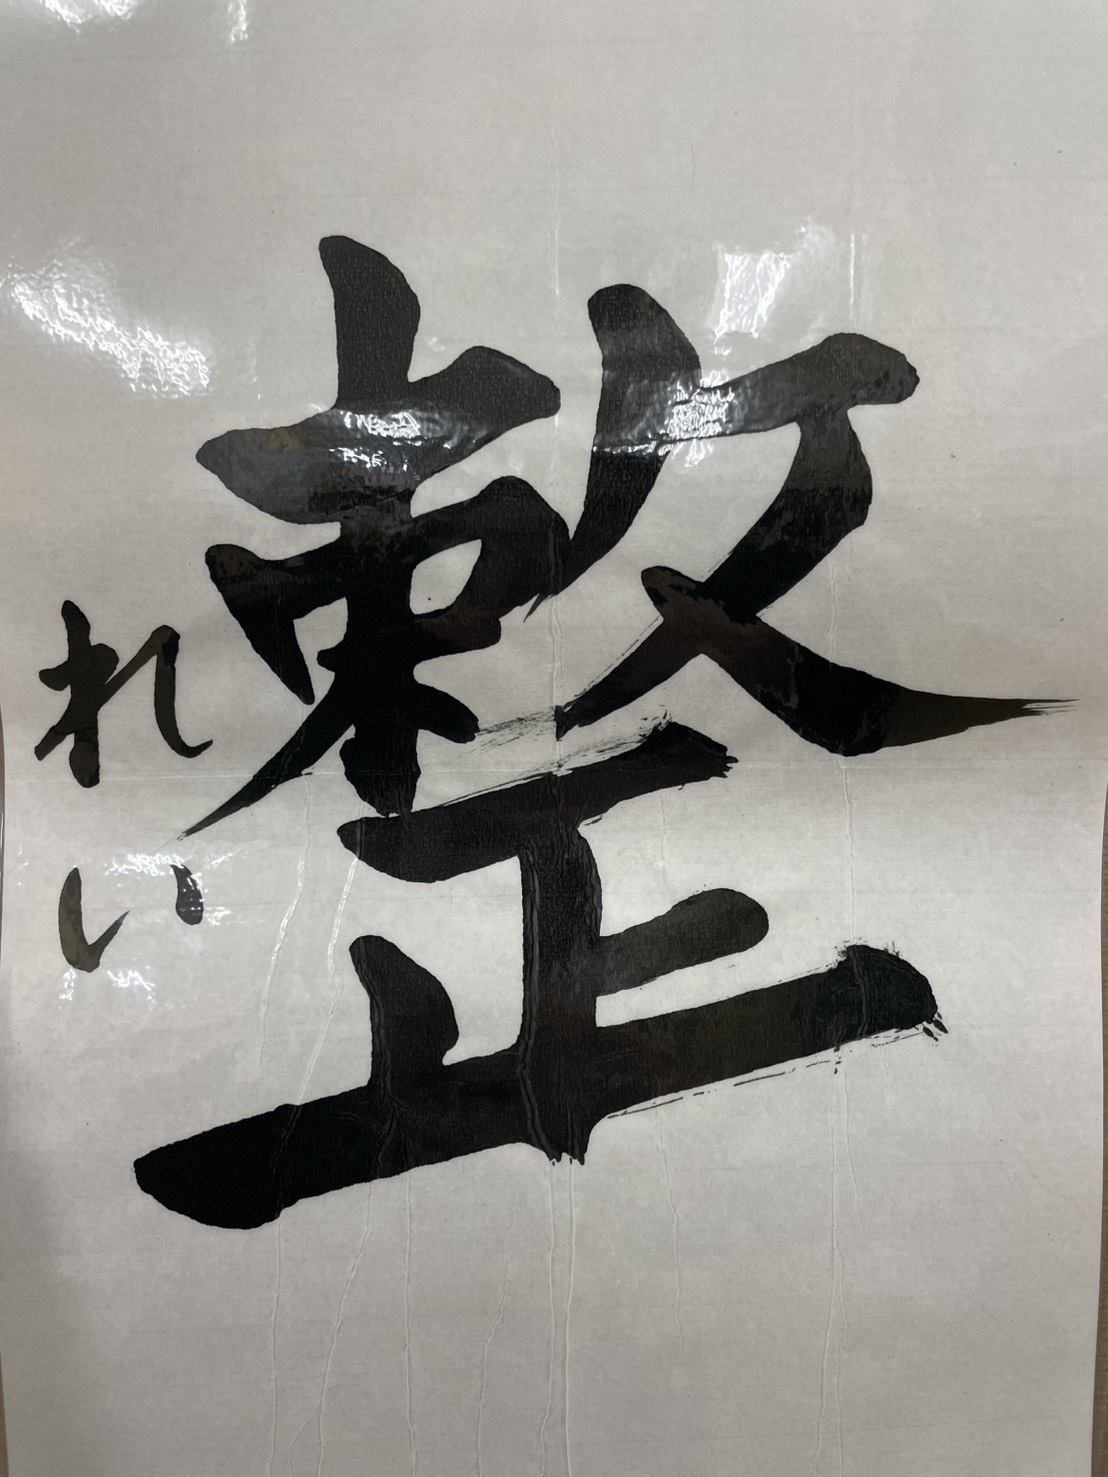 整
れい